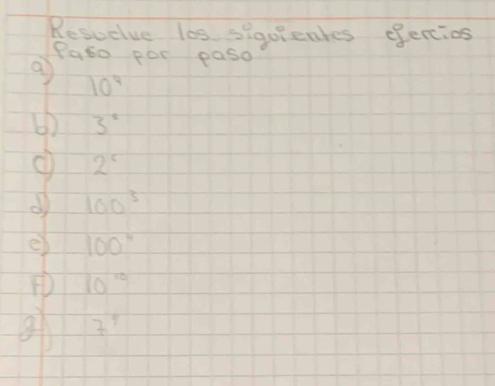 Resuelve los siguientes efercios
Paso por paso
a)
b) 3
c) 2
d) 100³
e) 100
F) 10¹⁰
g) 7